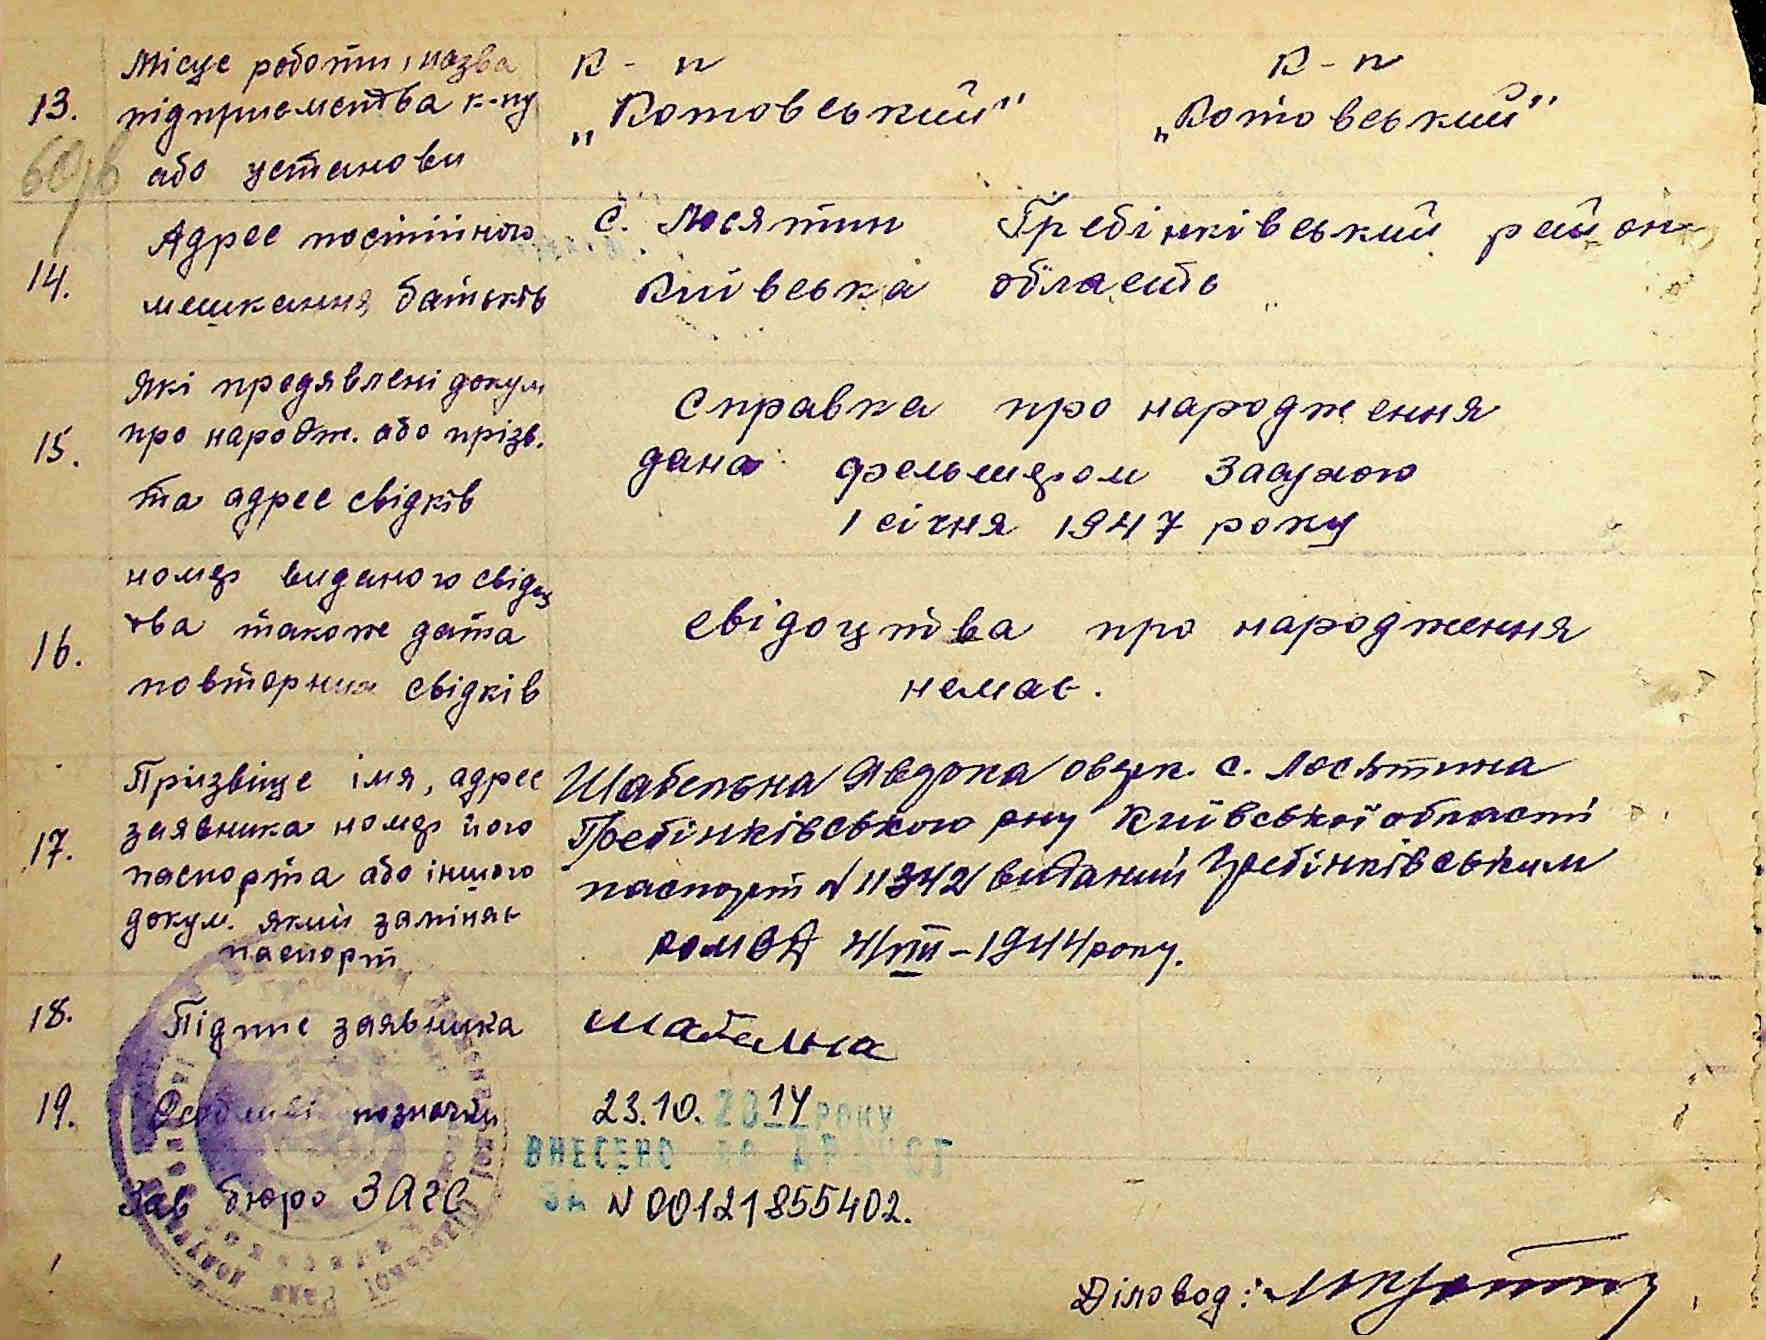 13. Місце роботи, назва
підприємства к-пу
або установи
к-п
„Котовський"
к-п
„Котовський"
14. Адрес постійного
мешкання батьків
с. Лосятин Гребінківський район
Київська область
15. Які предявлені докум
про народж. або прізв.
та адрес свідків
Справка про народження
дана фельшером
1 січня 1947 року
16. номер виданого свідоц
тва також дата
повторних свідків
свідоцтва про народження
немає.
17. Прізвіще імя, адрес
заявника номер його
паспорта або іншого
докум. який заміняє
паспорт
Шабельна Явдоха с. Лосятина
Гребінківського рну Київської області
паспорт N 11342 виданий Гребінківським
1944 року.
18. Підпис заявника
Шабельна
19. Особливі позначки
23.10. 2014 РОКУ
ВНЕСЕНО ДО АР
Зав бюро ЗАГС
ЗА N 00121855402.
Діловод: